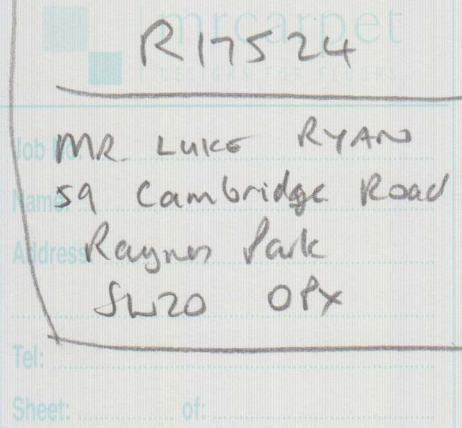 mrcarpet
R17524
DESIGNS FOR FLOORS
Job No:
MR. LUKE RYAN
Name:
59 Cambridge Road
Address:
Raynes Park
SW20 0PX
Tel:
Sheet: of: